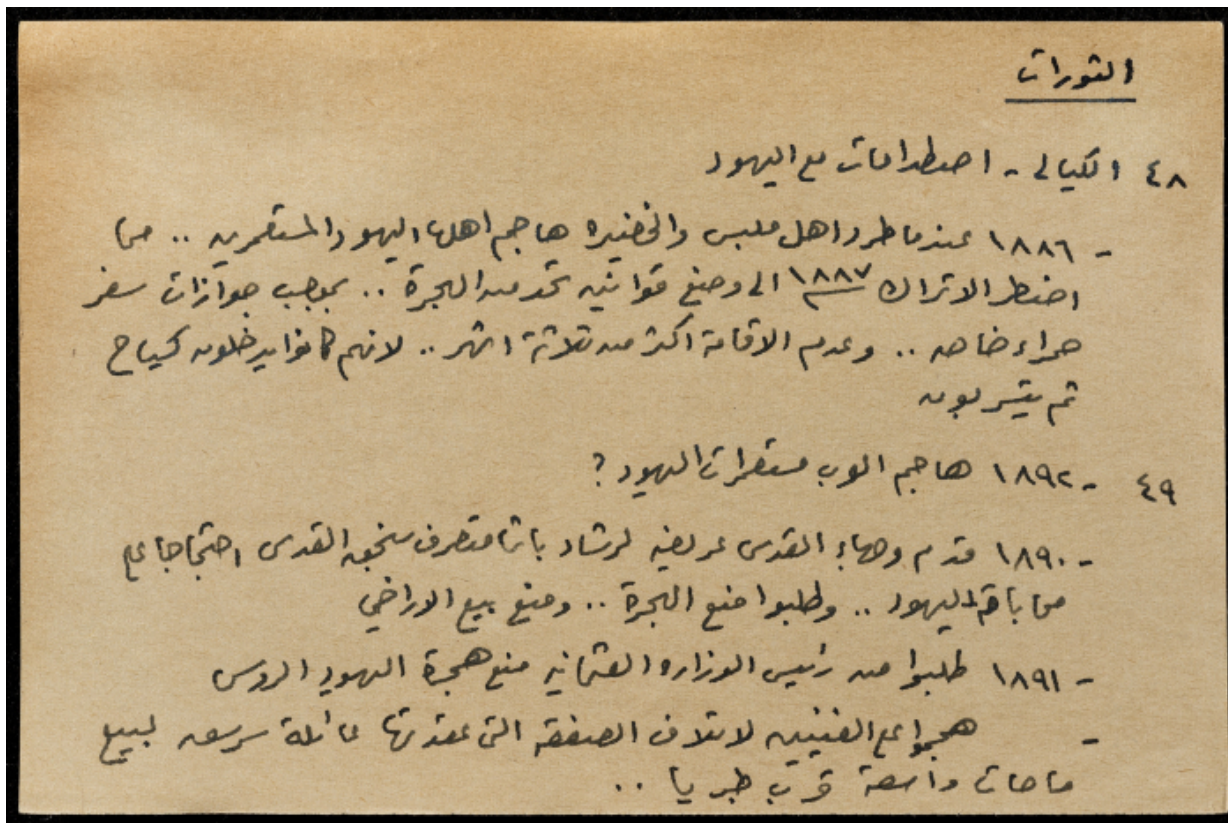 الثورات
٤٨ الكيالي - اصطدامات مع اليهود
- ١٨٨٦ عندما طرد اهل ملبس والخضيره هاجم اهلها اليهود المستعمرين .. مما
اضطر الاتراك ١٨٨٧ الى وضع قوانين تحد من الهجرة .. بموجب جوازات سفر
حمراء خاصه .. وعدم الاقامة اكثر من ثلاثة اشهر .. لانهم كانوا يدخلون كسياح
ثم يتسربون
٤٩ - ١٨٩٢ هاجم العرب مستعمرات اليهود ؟
- ١٨٩٠ قدم وجهاء القدس عريضه لرشاد باشا متصرف سنجق القدس احتجاجا على
محاباة اليهود .. وطلبوا منع الهجرة .. ومنع بيع الاراضي
- ١٨٩١ طلبوا من رئيس الوزاره العثمانيه منع هجرة اليهود الروس
- هجموا على الفنيين لاتلاف الصفقه التي عقدتها عائلة سرسق لبيع
مساحات واسعة قرب طبريا ..